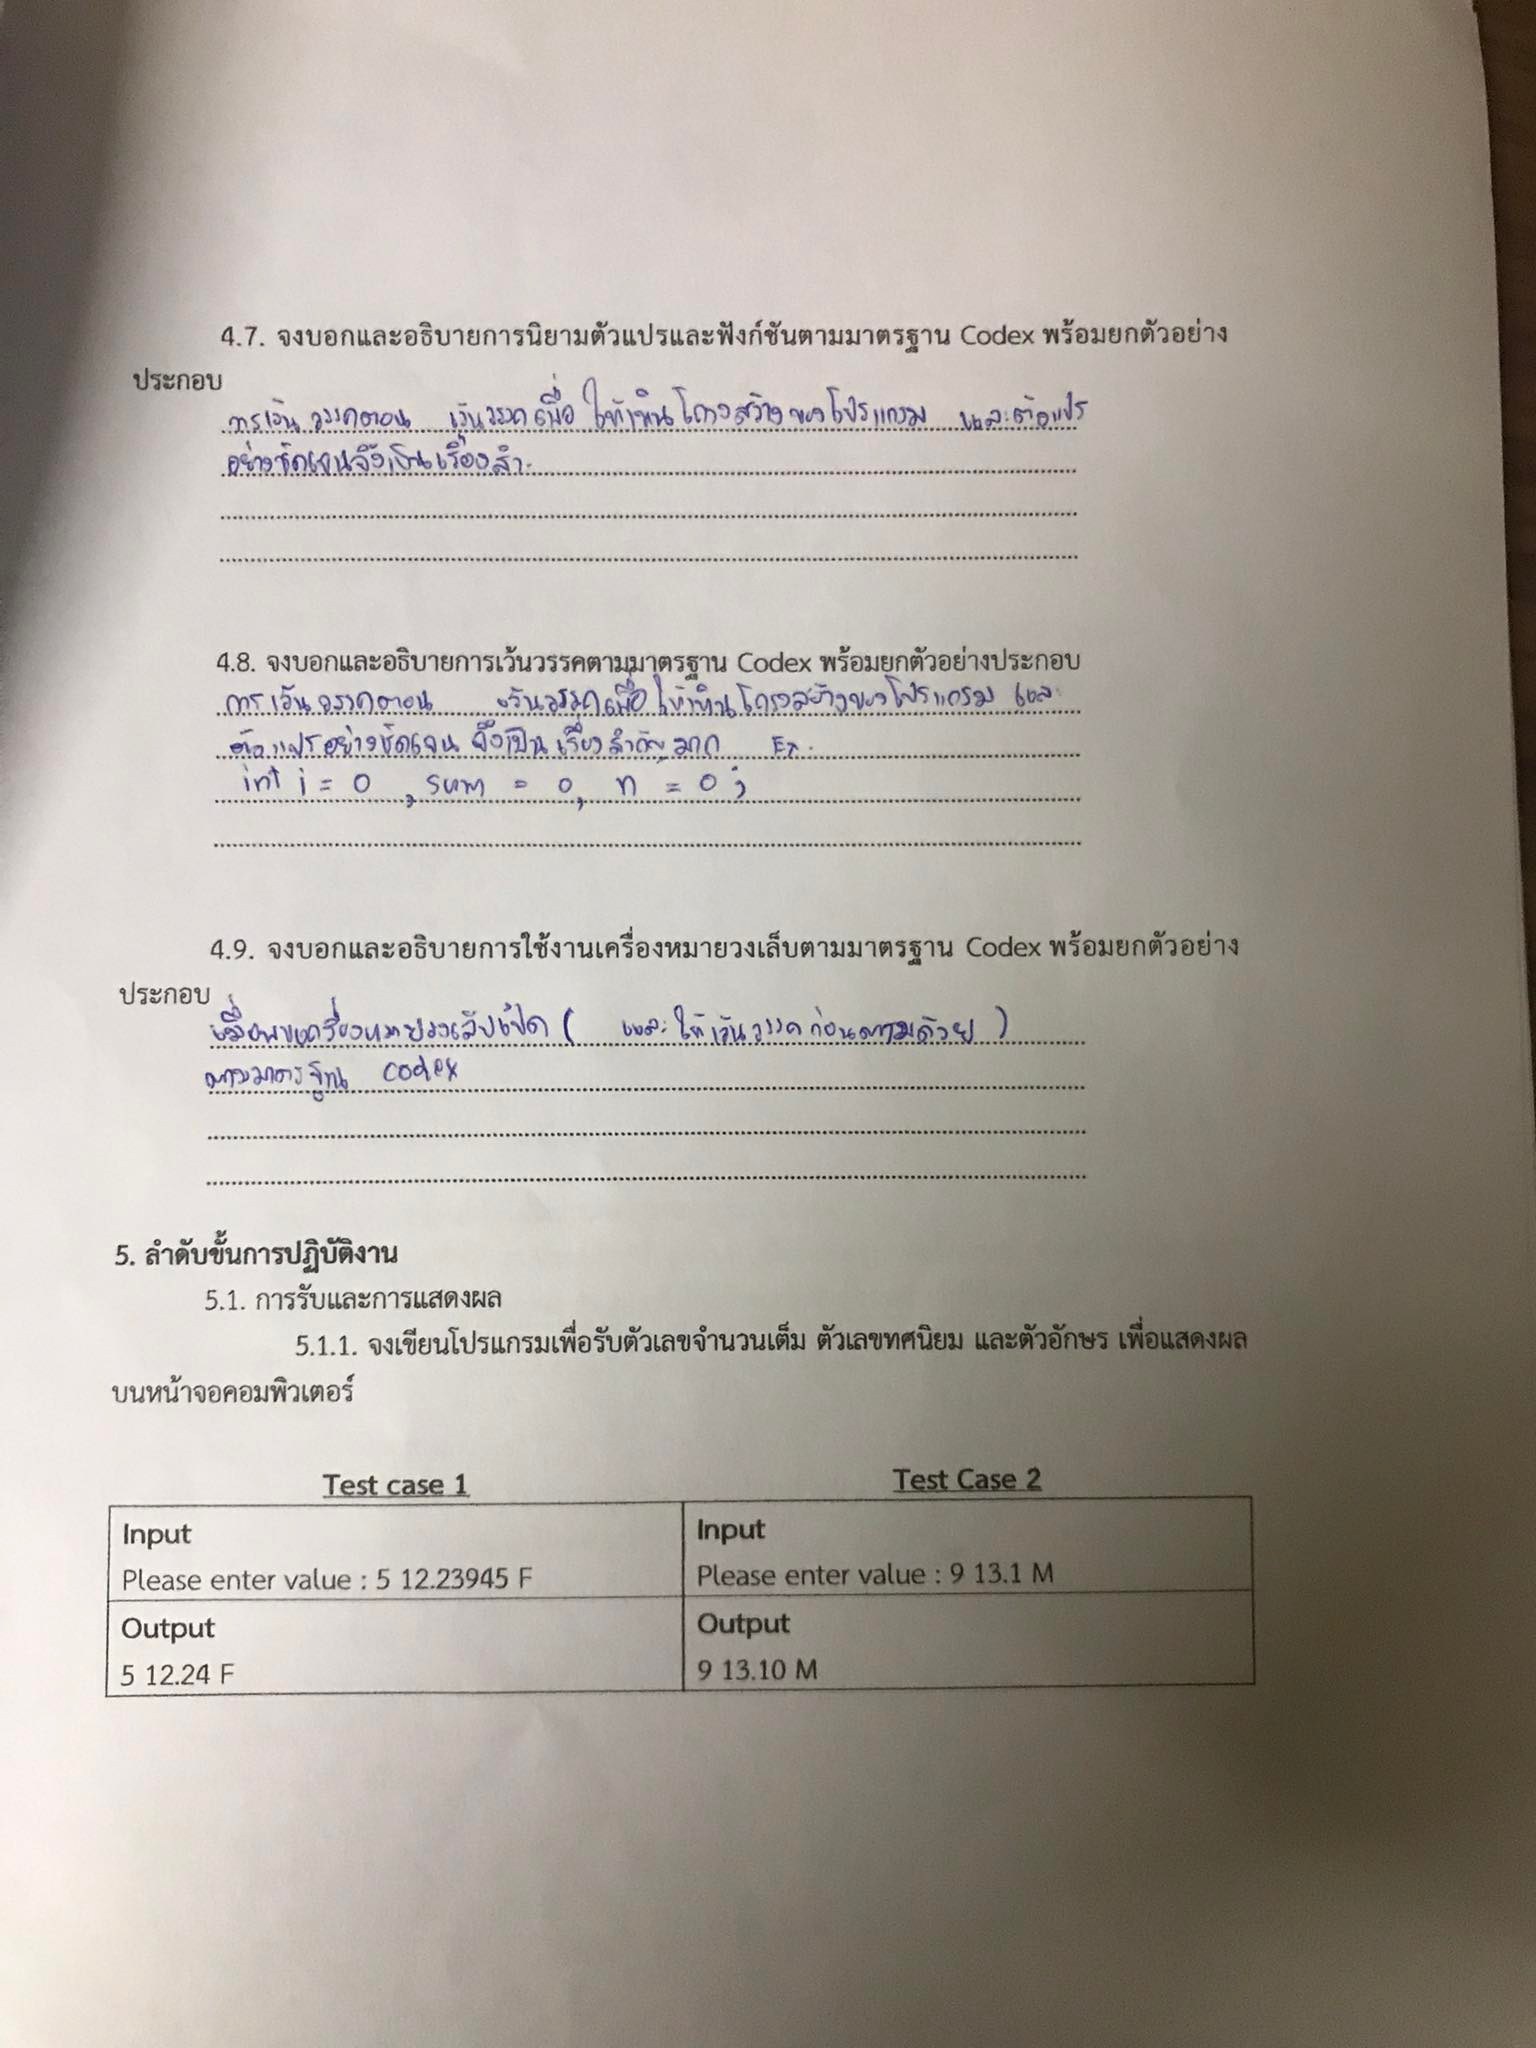 4.7. จงบอกและอธิบายการนิยามตัวแปรและฟังก์ชันตามมาตรฐาน Codex พร้อมยกตัวอย่าง
ประกอบ
การเว้นวรรคตอน เว้นวรรคเพื่อให้เห็นโครงสร้างของโปรแกรม และตัวแปร
อย่างชัดเจนจึงเป็นเรื่องสำ
4.8. จงบอกและอธิบายการเว้นวรรคตามมาตรฐาน Codex พร้อมยกตัวอย่างประกอบ
การเว้นวรรคตอน เว้นวรรคเพื่อให้เห็นโครงสร้างของโปรแกรม และ
ตัวแปรอย่างชัดเจน จึงเป็นเรื่องสำคัญมาก Ex.
int i = 0 , sum = 0, n = 0 ;
4.9. จงบอกและอธิบายการใช้งานเครื่องหมายวงเล็บตามมาตรฐาน Codex พร้อมยกตัวอย่าง
ประกอบ
เมื่อพบเครื่องหมายวงเล็บเปิด ( และให้เว้นวรรคก่อนตามด้วย )
ตามมาตรฐาน codex
5. ลำดับขั้นการปฏิบัติงาน
5.1. การรับและการแสดงผล
5.1.1. จงเขียนโปรแกรมเพื่อรับตัวเลขจำนวนเต็ม ตัวเลขทศนิยม และตัวอักษร เพื่อแสดงผล
บนหน้าจอคอมพิวเตอร์
Test case 1
Test Case 2
Input
Please enter value : 5 12.23945 F
Input
Please enter value : 9 13.1 M
Output
5 12.24 F
Output
9 13.10 M